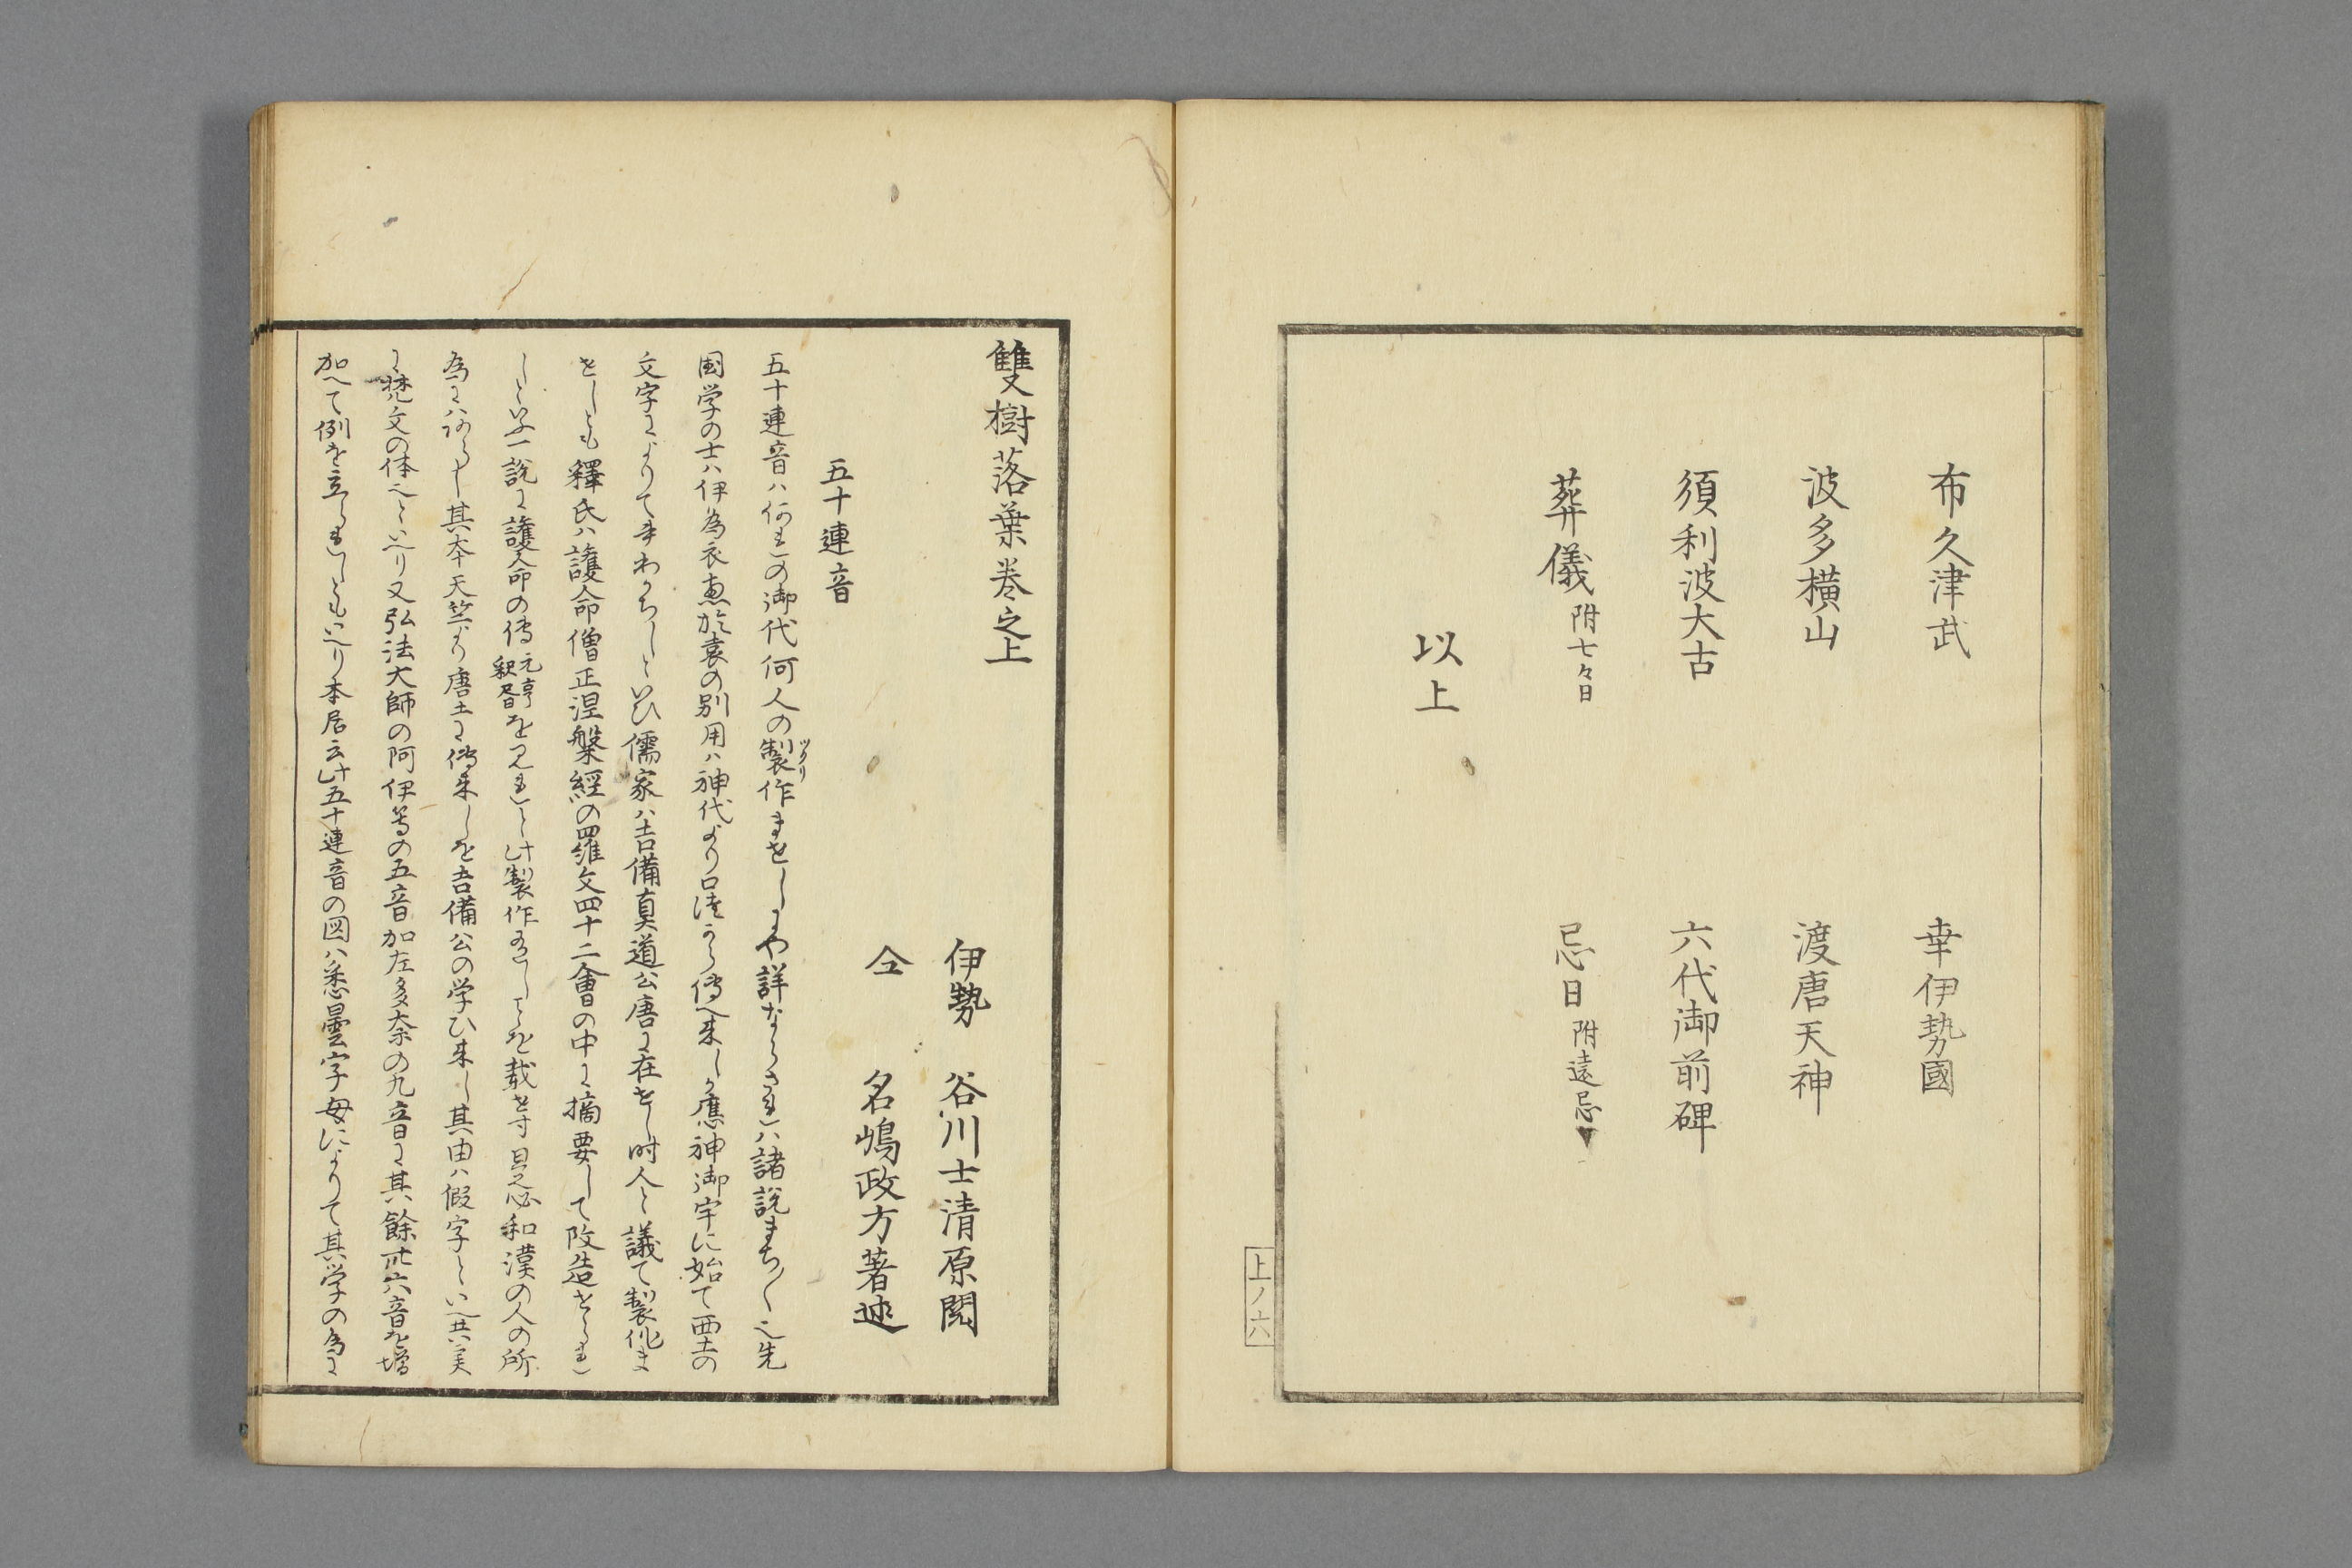 布久津武　幸伊勢國
波多横山　渡唐天神
須利波大古　六代御前碑
葬儀 附七々日　忌日 附遠忌
以上
上ノ六
雙樹落葉巻之上
伊勢　谷川士清原閲
仝　名嶋政方著述
五十連音
五十連音ハ何れの御代何人の製作ませしにや詳ならされハ諸説まち〱也先
ツクリ
国学の士ハ伊為衣恵於袁の別用ハ神代より口つから傳へ来しか應神御宇に始て西土の
文字によりて書わかちしといひ儒家ハ吉備真道公唐に在せし時人と議て製作ま
せしとも釋氏ハ護命僧正涅槃經の羅文四十二會の中に摘要して改造せられ
しといふ一説に護命の傳 元亨釈書 を見れと此製作有しことを載せす是必和漢の人の所
為にハあらし其本天竺より唐土に傳来しを吉備公の学ひ来し其由ハ假字といへ共実
に梵文の体也といへり又弘法大師の阿伊等の五音加左多奈の九音に其餘卅六音を増
加へて例を立られしともいへり本居云此五十連音の図ハ悉曇字母によりて其学の為に